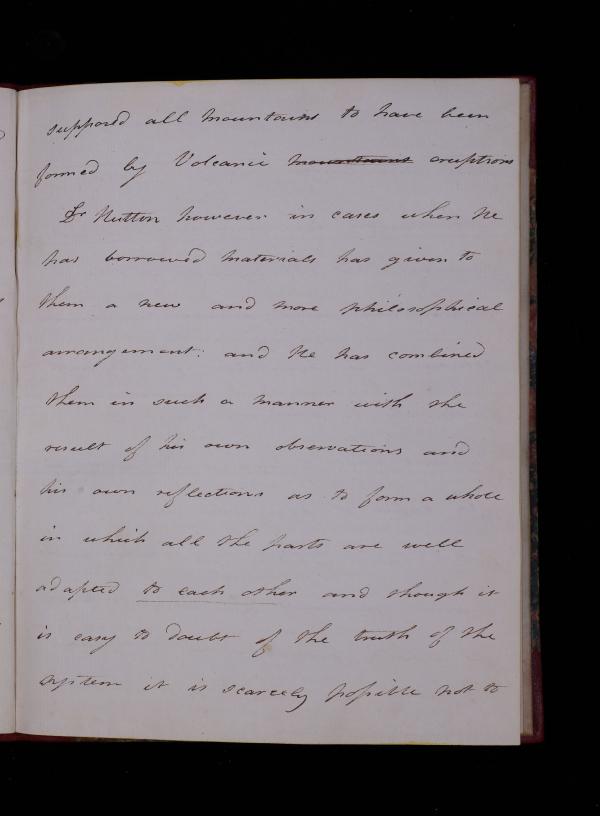 supposed all mountains to have been
formed by Volcanic mountains eruptions
Dr Hutton however in cases when he
has borrowed materials has given to
them a new and more philosophical
arrangement: and he has combined
them in such a manner with the
result of his own observations and
his own reflections as to form a whole
in which all the parts are well
adapted to each other and though it
is easy to doubt of the truth of the
system it is scarcely possible not to